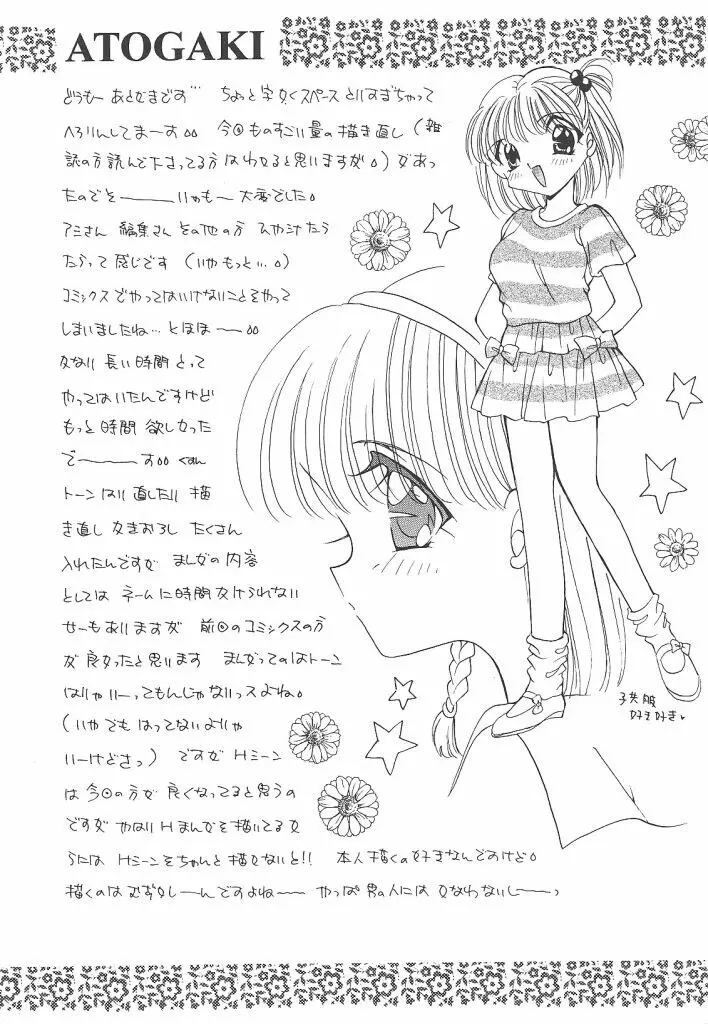 ATOGAKI
どうもー あとがきです… ちょっと字かくスペースとりすぎちゃって
へろりんしてまーす。。 今回ものすごい量の描き直し(雑
誌の方読んで下さってる方はわかると思いますが。)があっ
たのでそーーーいやもー 大変でした。
アミさん 編集さん その他の方 ひやひやたら
たらって感じです (いやもっとい。)
コミックスでやってはいけないことをやって
しまいましたね… とほほーー。。
かなり 長い時間 とって
やってはいたんですけど
もっと時間 欲しかった
でーーーーす。。 くすん
トーンはり直したり 描
き直し かきおろし たくさん
入れたんですが まんがの内容
としては ネームに時間かけられない
せーもありますが 前回のコミックスの方
が 良かったと思います まんがってのはトーン
はりゃいーってもんじゃないっスよね。
(いやでも はってないよりゃ
いーけどさっ) ですが Hシーン
は 今回の方が 良くなってると思うの
ですが やはり Hまんがを描いてるか
らには Hシーンをちゃんと描かないと!! 本人描くの好きなんですけど。
描くのは むずかしーーんですよね〜〜 やっぱ 男の人には かなわないしーーっ
子供服
好き好き♥